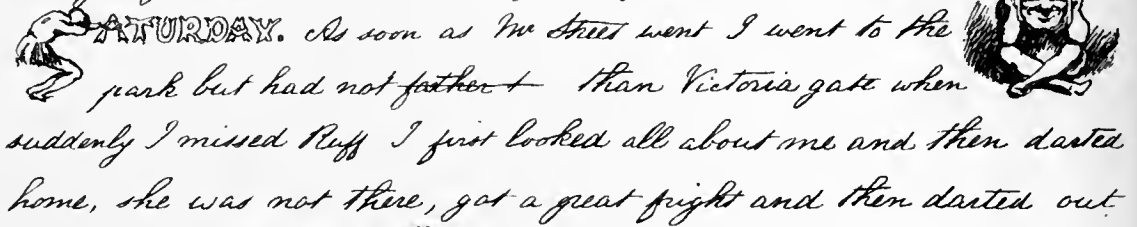 SATURDAY. As soon as Mr Street went I went to the
park but had not father than Victoria gate when
suddenly I missed Ruff I first looked all about me and then darted
home, she was not there, got a great fright and then darted out